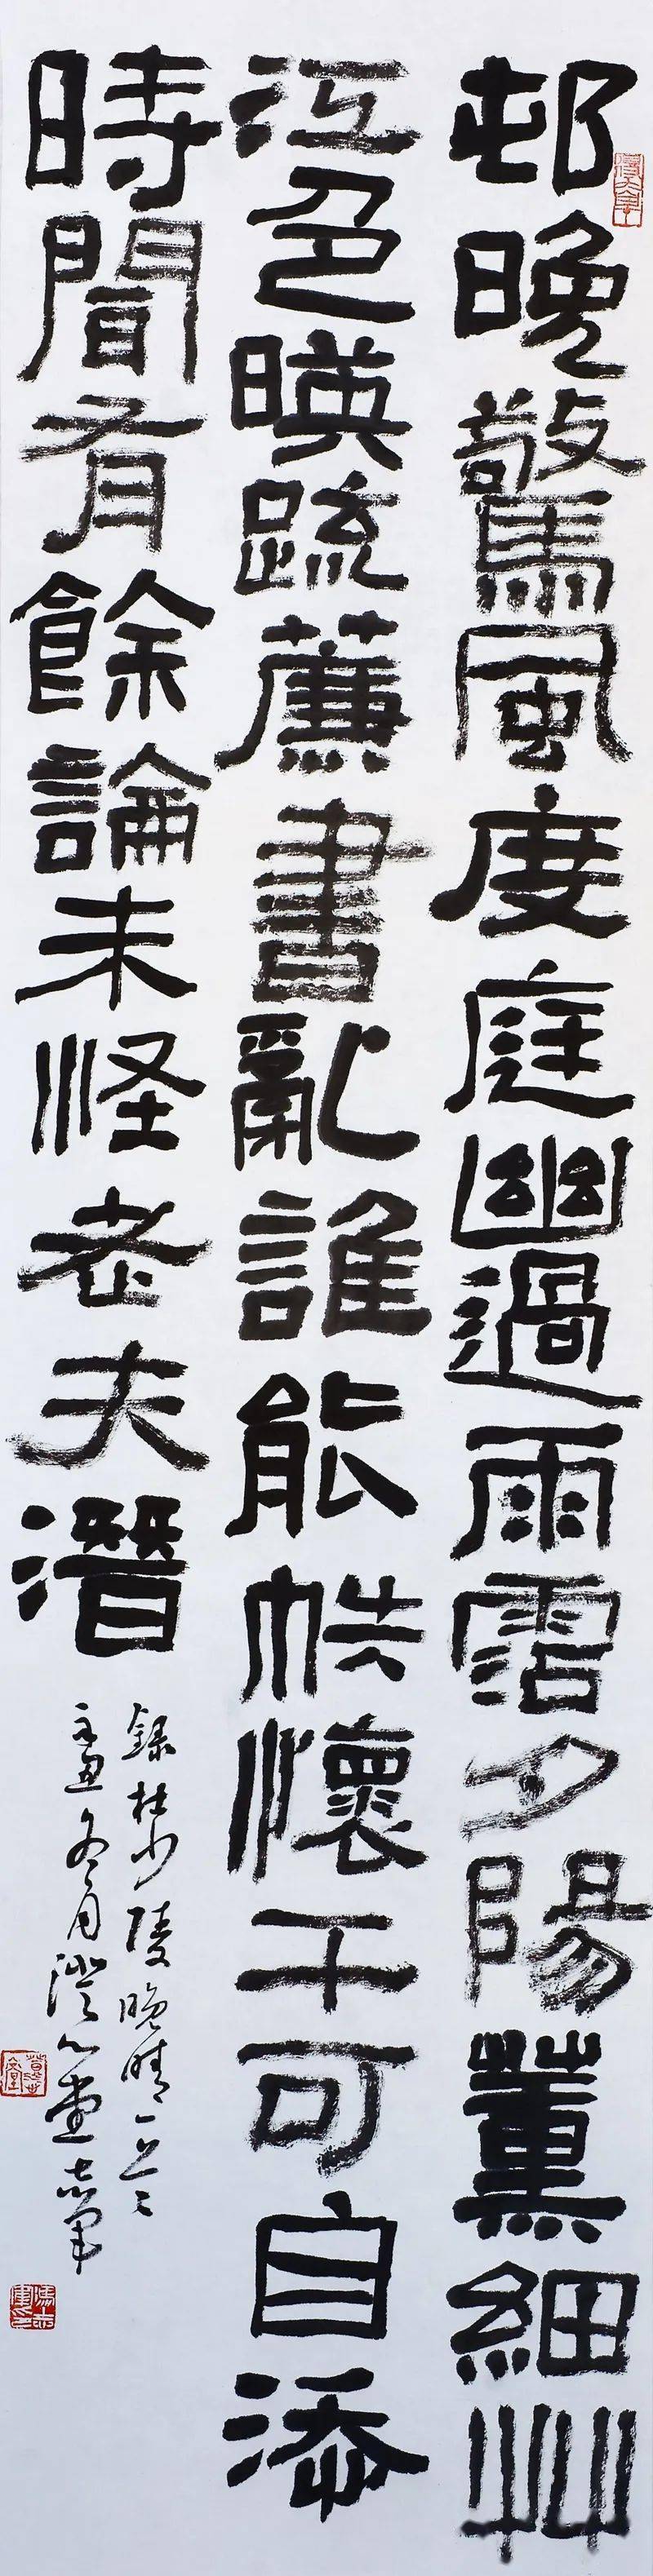 邨晚驚風度庭幽過雨霑夕陽薰細艸
江色暎疏薕書亂誰能帙懷干可自添
時聞有餘論未怪老夫潛
録杜少陵晚晴一首
冬月澄心堂志軍